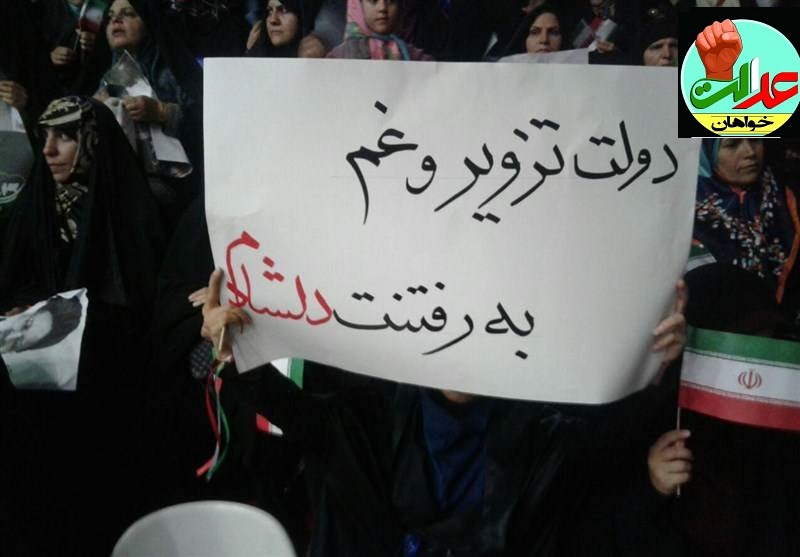 دولت تزویر و غم
به رفتنت دلشادم
عدالت
خواهان